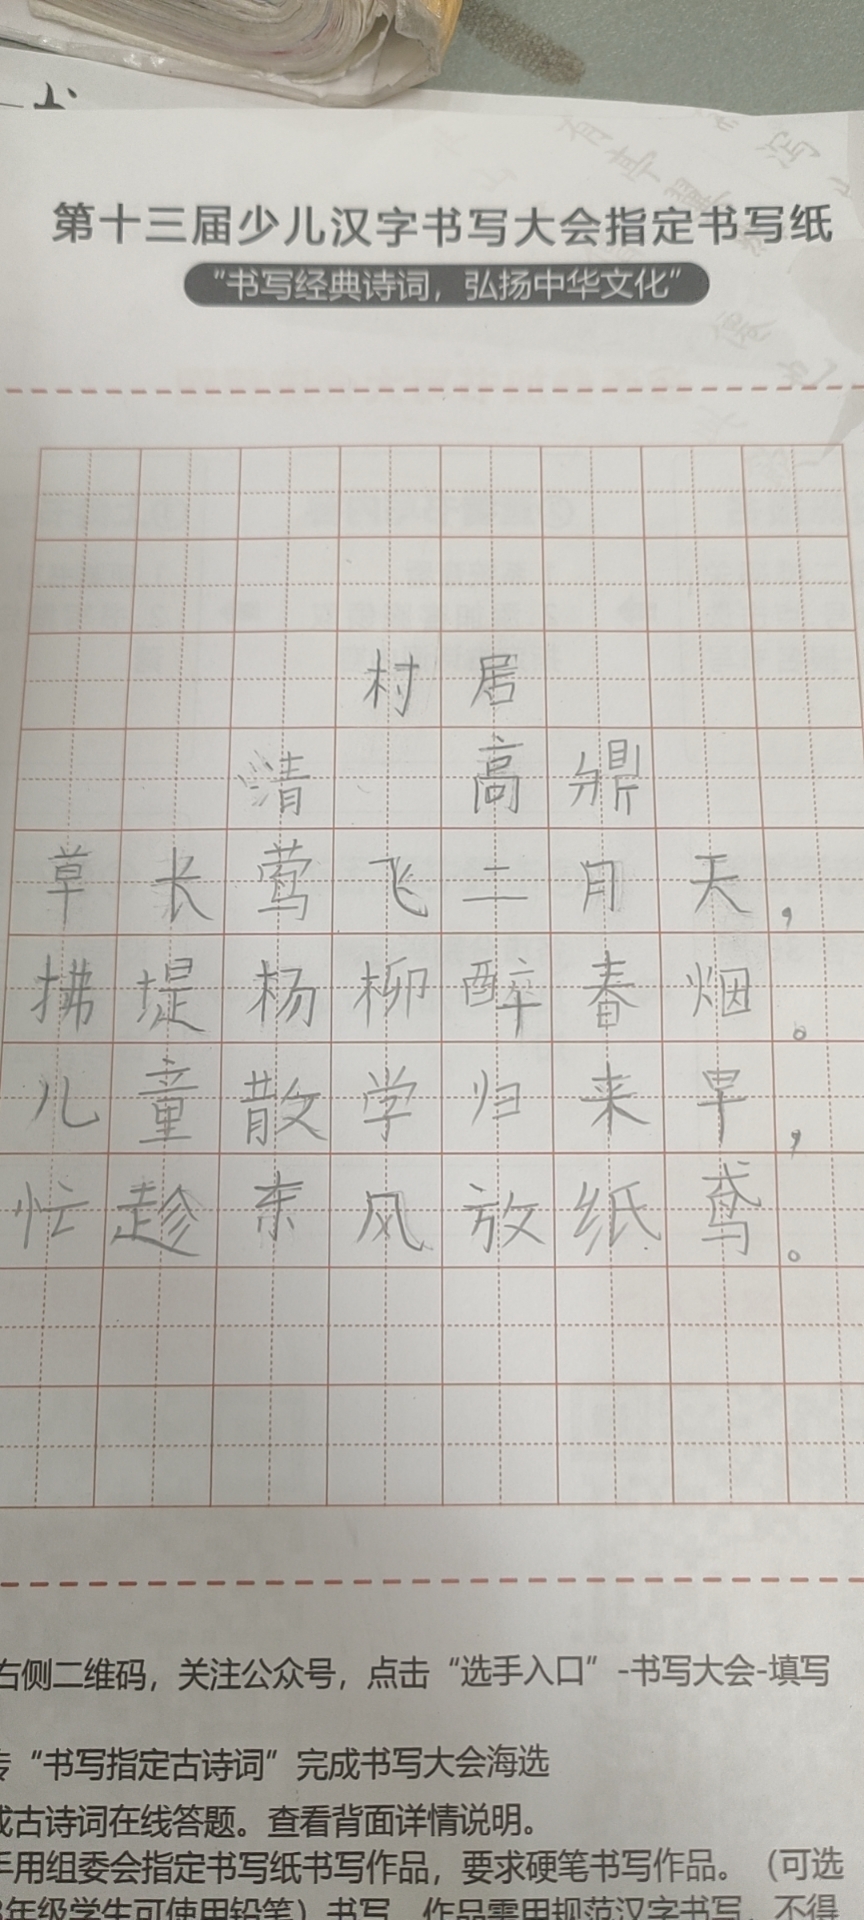 第十三届少儿汉字书写大会指定书写纸
“书写经典诗词，弘扬中华文化”
村居
清 高鼎
草长莺飞二月天，
拂堤杨柳醉春烟。
儿童散学归来早，
忙趁东风放纸鸢。
右侧二维码，关注公众号，点击“选手入口”-书写大会-填写
传“书写指定古诗词”完成书写大会海选
成古诗词在线答题。查看背面详情说明。
手用组委会指定书写纸书写作品，要求硬笔书写作品。（可选
3年级学生可使用铅笔）书写，作品需用规范汉字书写，不得